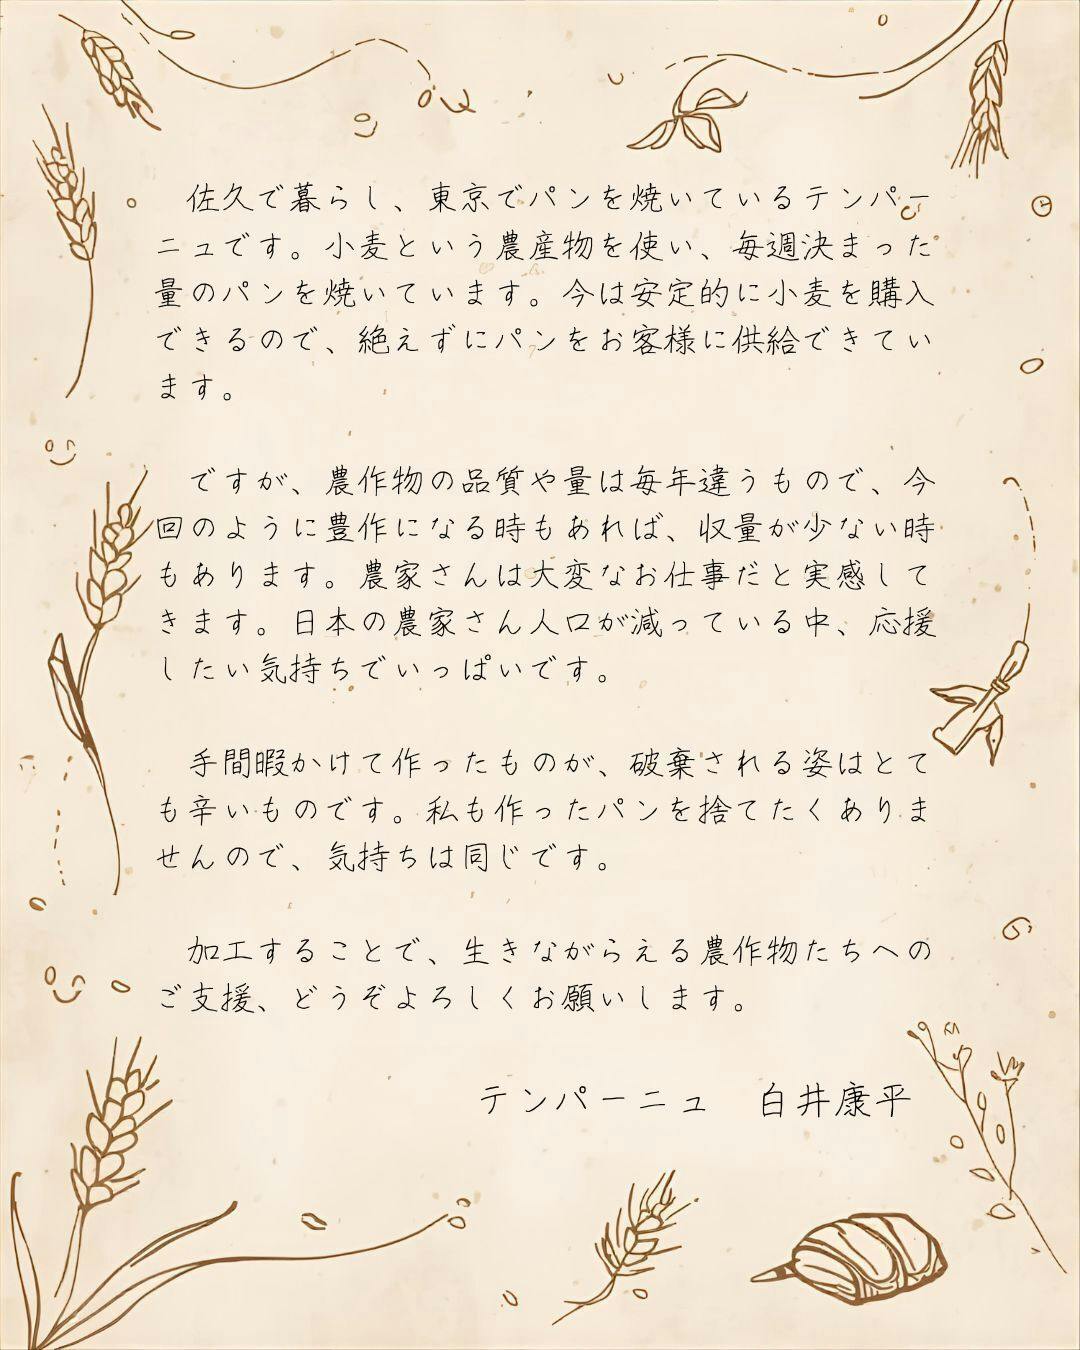 佐久で暮らし、東京でパンを焼いているテンパー
ニュです。小麦という農産物を使い、毎週決まった
量のパンを焼いています。今は安定的に小麦を購入
できるので、絶えずにパンをお客様に供給できてい
ます。
ですが、農作物の品質や量は毎年違うもので、今
回のように豊作になる時もあれば、収量が少ない時
もあります。農家さんは大変なお仕事だと実感して
きます。日本の農家さん人口が減っている中、応援
したい気持ちでいっぱいです。
手間暇かけて作ったものが、破棄される姿はとて
も辛いものです。私も作ったパンを捨てたくありま
せんので、気持ちは同じです。
加工することで、生きながらえる農作物たちへの
ご支援、どうぞよろしくお願いします。
テンパーニュ　白井康平